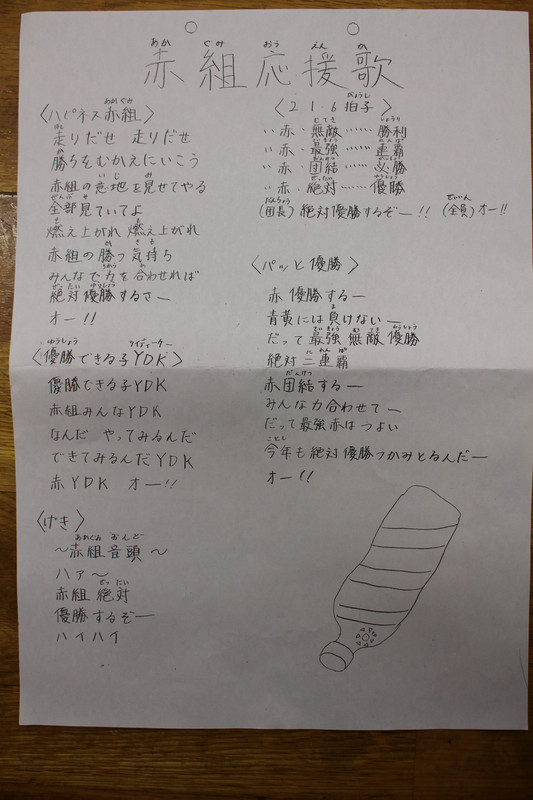 赤組応援歌
〈ハピネス赤組〉
走りだせ 走りだせ
勝ちをむかえにいこう
赤組の意地を見せてやる
全部見ていてよ
燃え上がれ 燃え上がれ
赤組の勝つ気持ち
みんなで力を合わせれば
絶対優勝するさー
オー!!
〈優勝できる子YDK〉
優勝できる子YDK
赤組みんなYDK
なんだ やってみるんだ
できてみるんだYDK
赤YDK オー!!
〈げき〉
〜赤組音頭〜
ハァ〜
赤組絶対
優勝するぞー
ハイハイ
〈216拍子〉
‥赤・無敵‥‥‥勝利
‥赤・最強‥‥‥連覇
‥赤・団結‥‥‥必勝
‥赤・絶対‥‥‥優勝
(団長)絶対優勝するぞー!! (全員)オー!!
〈パッと優勝〉
赤優勝するー
青黄には負けないー
だって最強無敵優勝
絶対二連覇
赤団結するー
みんな力合わせてー
だって最強赤はつよい
今年も絶対優勝つかみとるんだー
オー!!